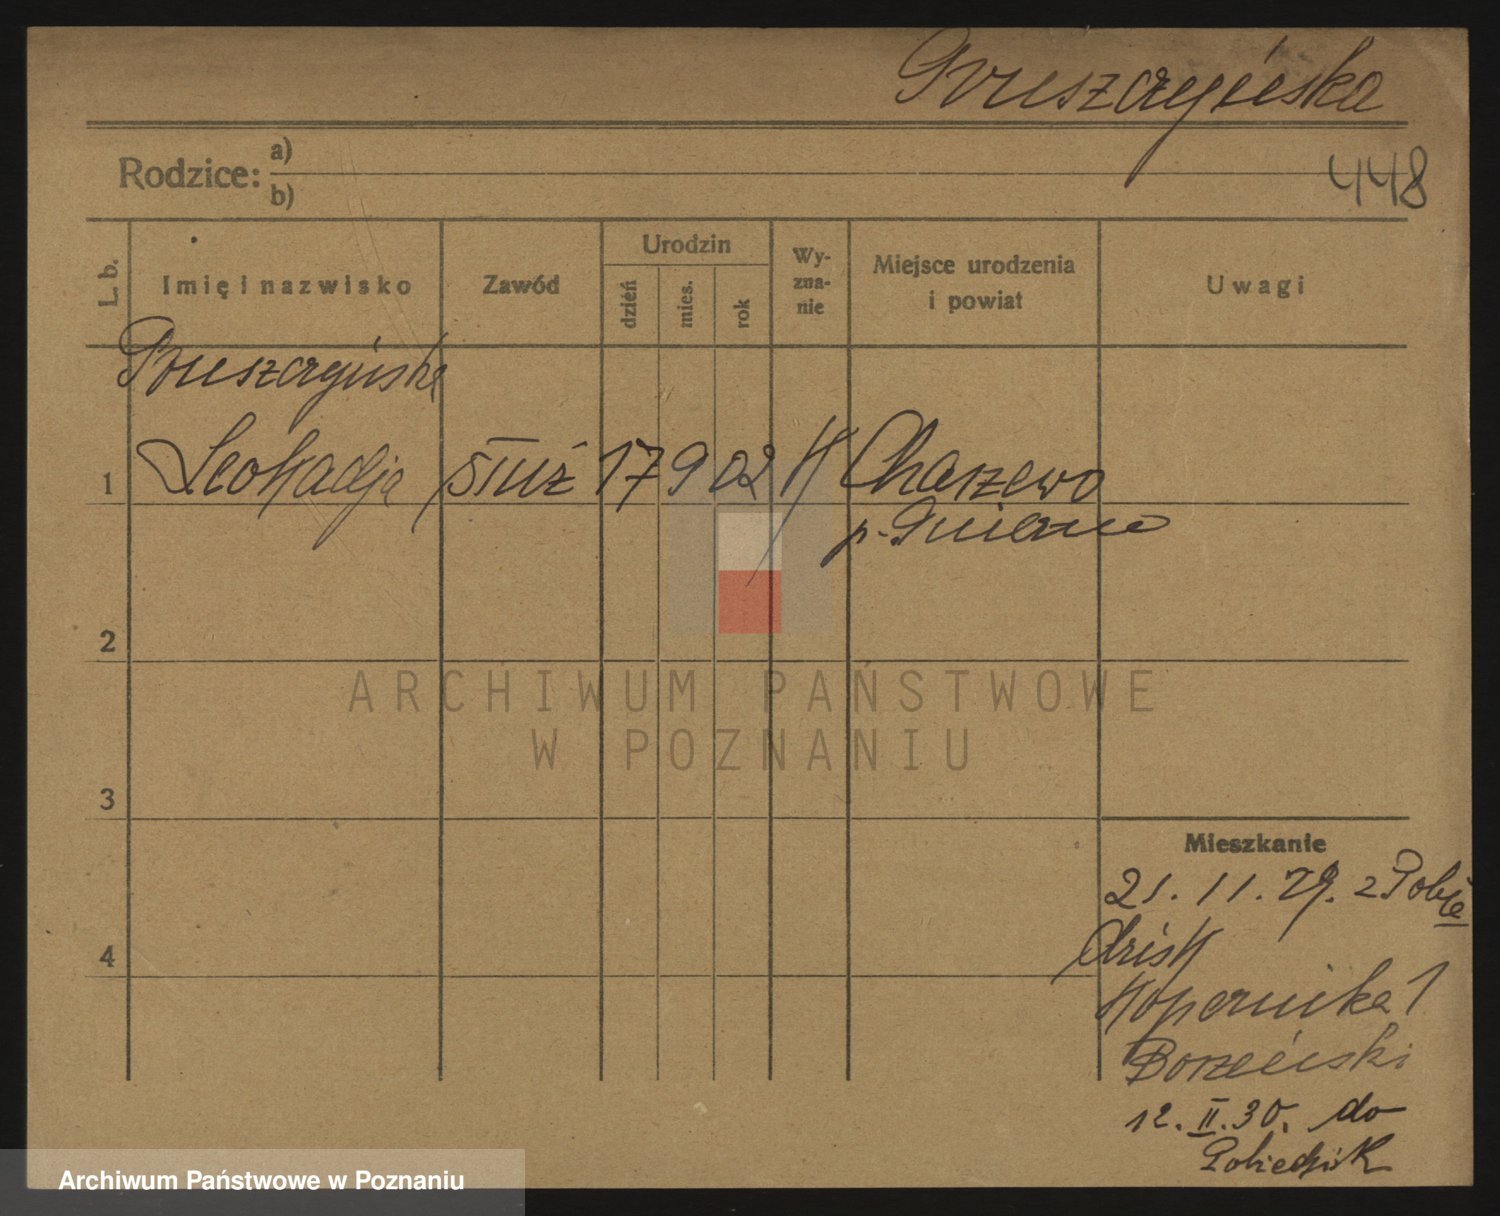 Pruszczyńska
448
Rodzice: a)
b)
L. b.
Imię i nazwisko
Zawód
Urodzin
dzień
mies.
rok
Wy-
zna-
nie
Miejsce urodzenia
i powiat
Uwagi
Pruszczyńska
1 Leokadja służ 17 9 02 K
p. Gniezno
2
3
4
ARCHIWUM PAŃSTWOWE
W POZNANIU
Mieszkanie
21. 11. 29. z Pobie
dzisk
Kopernika 1
12. II. 30. do
Pobiedzisk
Archiwum Państwowe w Poznaniu